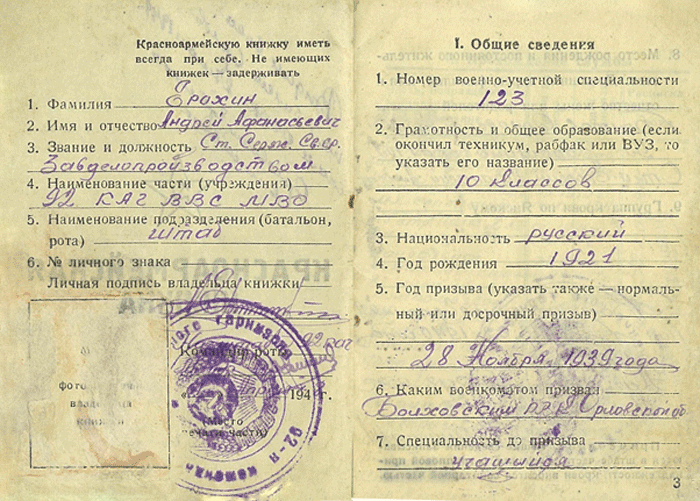 Красноармейскую книжку иметь
всегда при себе. Не имеющих
книжек — задерживать
1. Фамилия Ерохин
2. Имя и отчество Андрей Афанасьевич
3. Звание и должность Ст. Серж. Свср.
Завделопроизводством
4. Наименование части (учреждения)
92 КАГ ВВС МВО
5. Наименование подразделения (батальон,
рота) штаб
6. № личного знака
Личная подпись владельца книжки
Командир роты
194 г.
(Место
печати части)
фото
владельца
книжки
ного гарнизона
92-я
I. Общие сведения
1. Номер военно-учетной специальности
123
2. Грамотность и общее образование (если
окончил техникум, рабфак или ВУЗ, то
указать его название)
10 классов
3. Национальность русский
4. Год рождения 1921
5. Год призыва (указать также — нормаль-
ный или досрочный призыв)
28 Ноября 1939 года
6. Каким военкоматом призван
Болховский РВК Орловской об
7. Специальность до призыва
учащийся
3